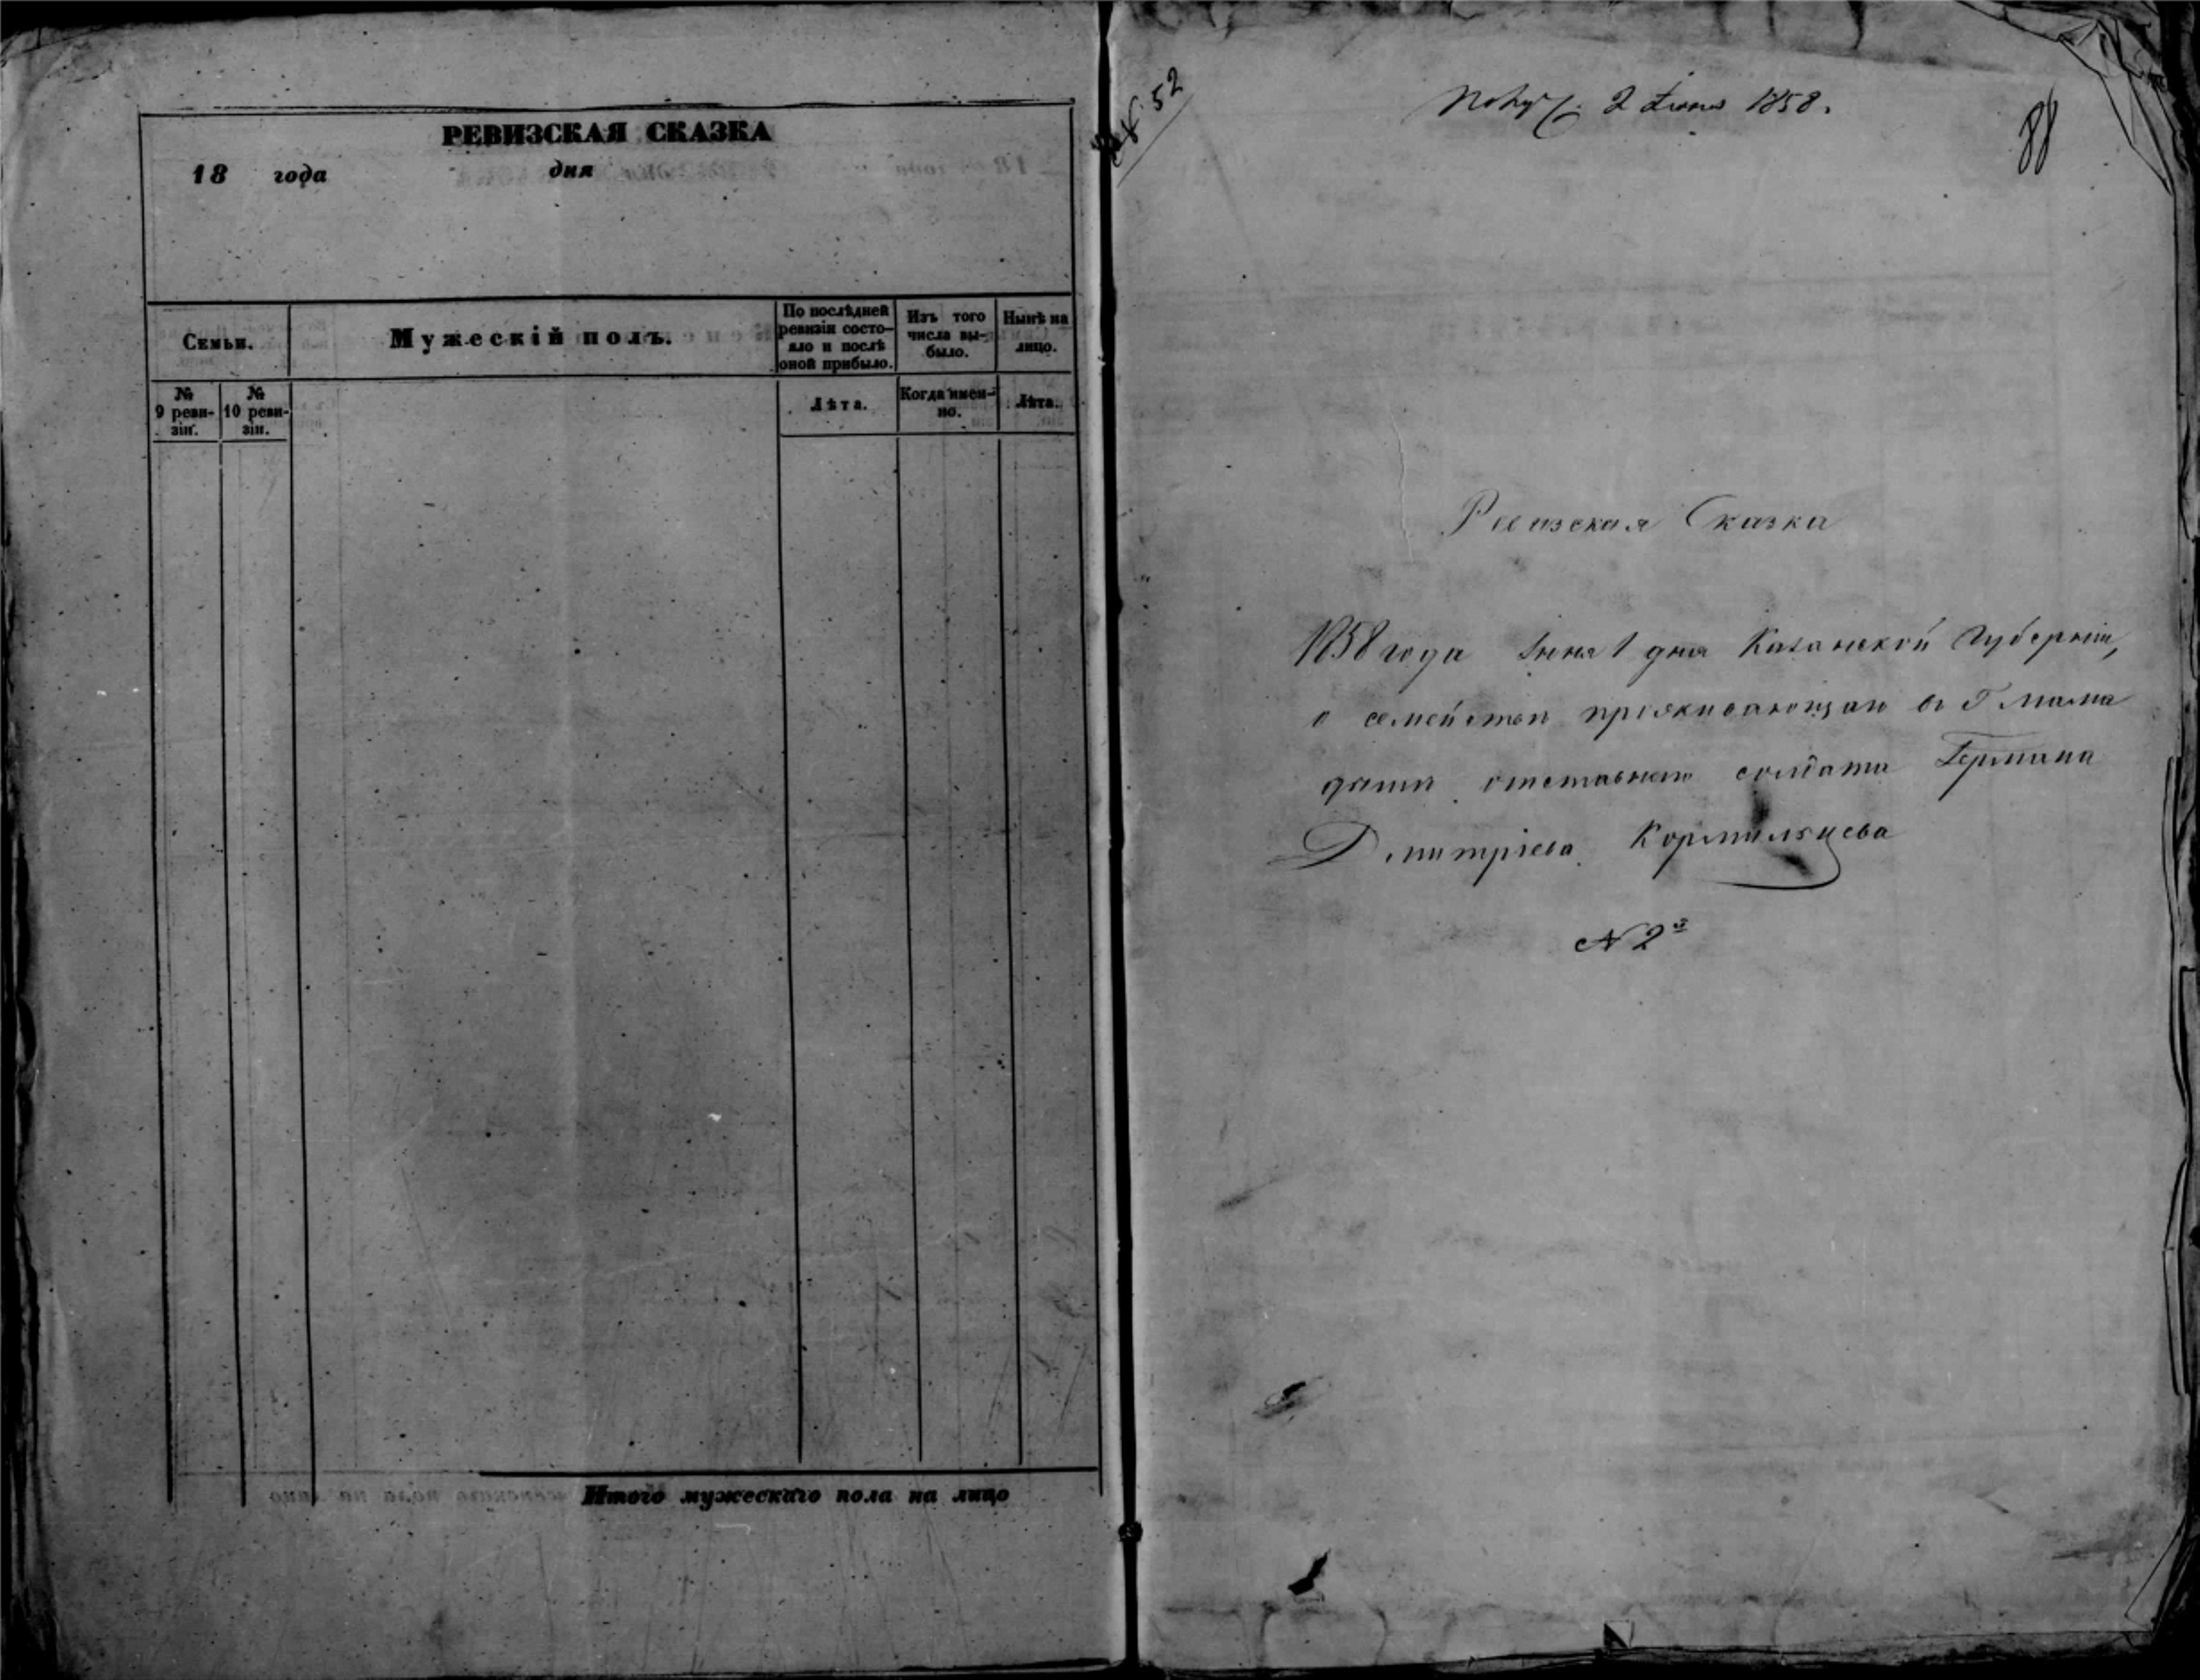 РЕВИЗСКАЯ СКАЗКА
18 года дня
Семьи.
Мужескій полъ.
По послѣдней
ревизіи состо-
яло и послѣ
оной прибыло.
Изъ того
числа вы-
было.
Нынѣ на
лицо.
№
9 реви-
зіи.
№
10 реви-
зіи.
Лѣта.
Когда имен-
но.
Лѣта.
Итого мужескаго пола на лицо
52
2 Іюня 1858.
88
Ревизская Сказка
1858 года Іюня 1 дня Казанской Губерніи,
о семействѣ проживающаго въ Г Мама
дышѣ отставнаго солдата Германа
Дмитріева Кормильцева
№ 2й